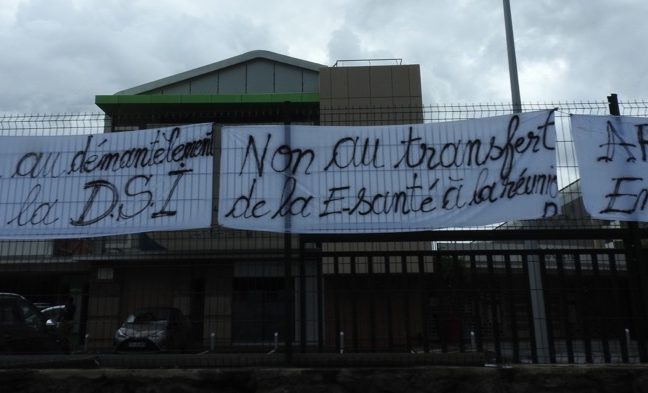 au démantèlement
la D.S.I
Non au transfert
de la E-santé à la réunion